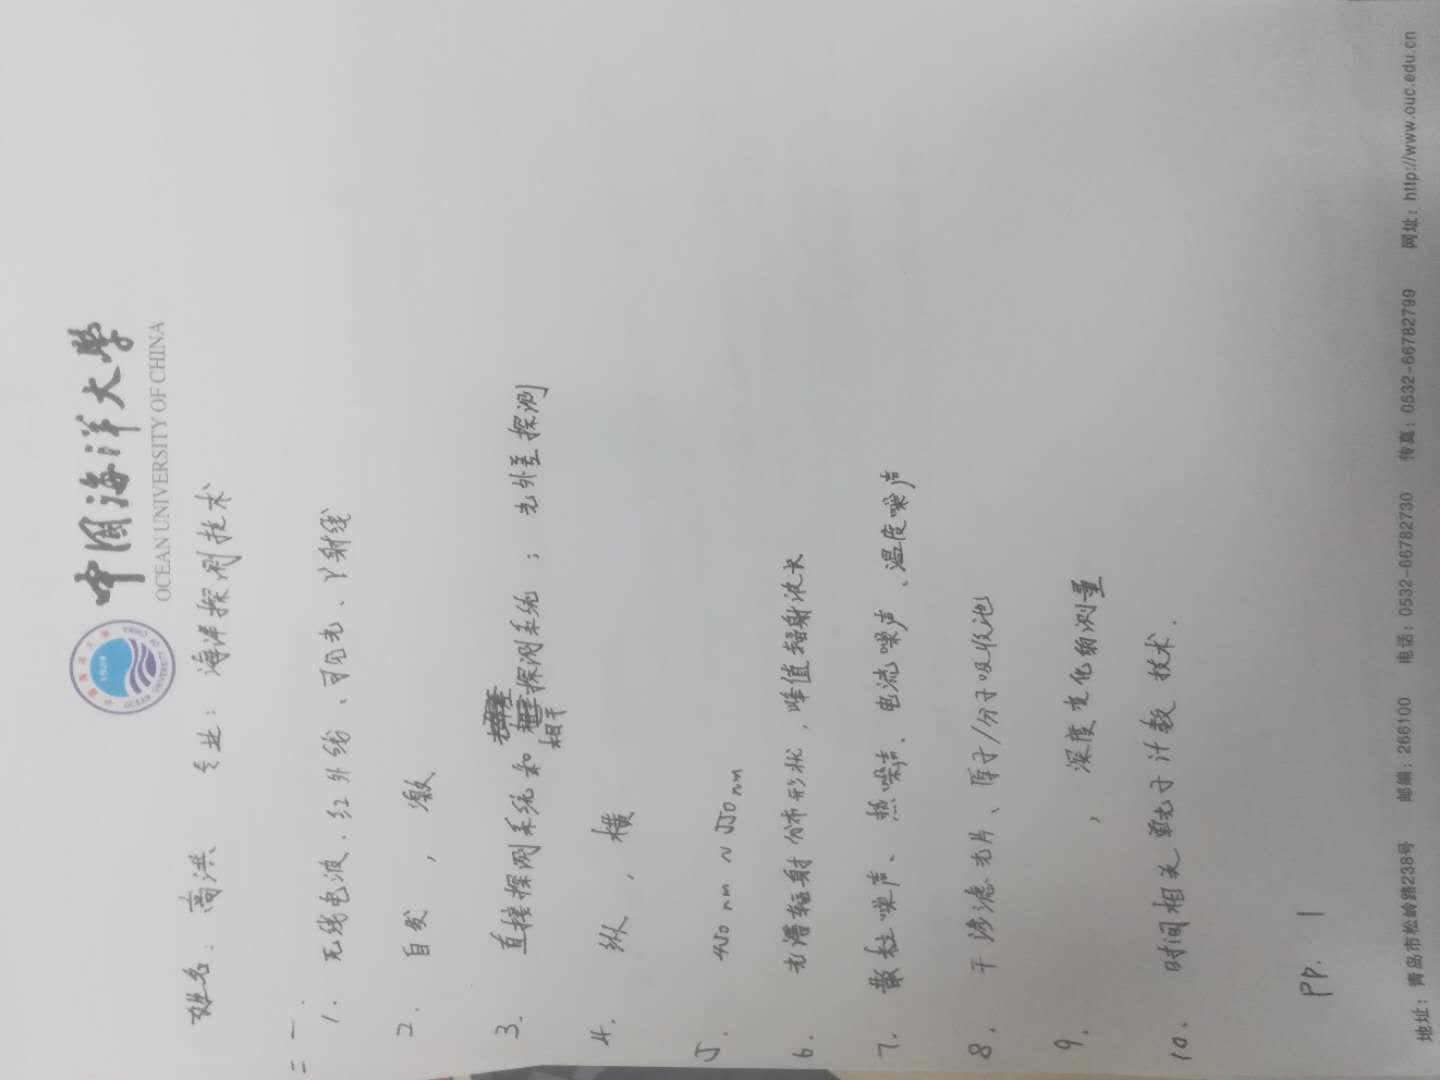 中国海洋大学
OCEAN UNIVERSITY OF CHINA
姓名：高洪 专业：海洋探测技术
二 一.
1. 无线电波、红外线、可见光、γ射线
2. 自发，激
3. 直接探测系统和相干探测系统；光外差探测
4. 纵，横
5. 450nm~550nm
6. 光谱辐射分布形状，峰值辐射波长
7. 散粒噪声、热噪声、电流噪声、温度噪声
8. 干涉滤光片、原子/分子吸收池
9. ，深度变化的测量
10. 时间相关单光子计数技术.
PP. 1
地址：青岛市松岭路238号 邮编：266100 电话：0532-66782730 传真：0532-66782799 网址：http://www.ouc.edu.cn